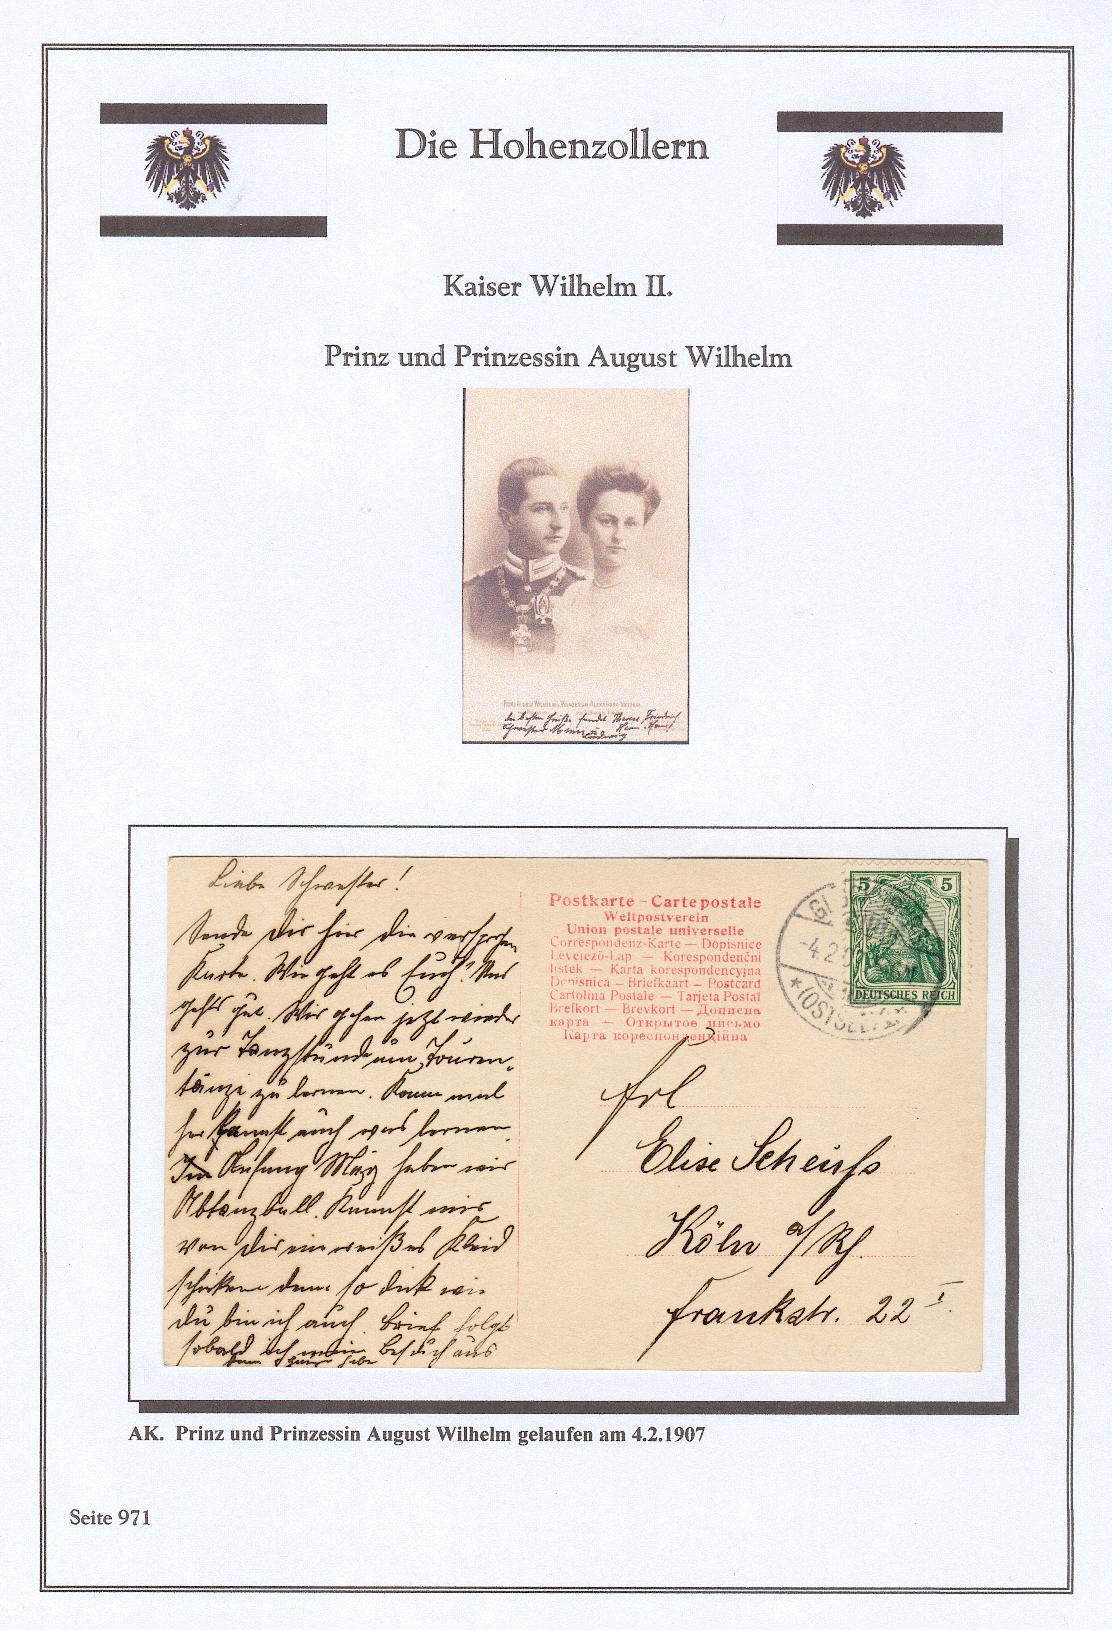 Die Hohenzollern
Kaiser Wilhelm II.
Prinz und Prinzessin August Wilhelm
Liebe Schwester!
Sende Dir hier die versproch
Karte. Wie geht es Euch? Uns
geht's gut. Wir gehen jetzt wieder
zur Tanzstunde um Touren-
tänze zu lernen. Komm mal
her kannst auch was lernen.
Im Anfang März haben wir
Abtanzball. Kannst mir
von Dir ein weißes Kleid
schicken denn so dick wie
du bin ich auch. Brief folgt
sobald ich mein Besuch aus
Postkarte – Carte postale
Weltpostverein
Union postale universelle
Correspondenz-Karte — Dopisnice
Levelező-Lap — Korespondenční
lístek — Karta korespondencyjna
Dopisnica — Briefkaart — Postcard
Cartolina Postale — Tarjeta Postal
Brefkort — Brevkort — Дописна
карта — Открытое письмо
Карта кореспонденційна
5 5
DEUTSCHES REICH
-4.2
*(OSTSEE)
Frl
Elise Scheuss
Köln a/Rh.
Frankstr. 22 I.
AK. Prinz und Prinzessin August Wilhelm gelaufen am 4.2.1907
Seite 971